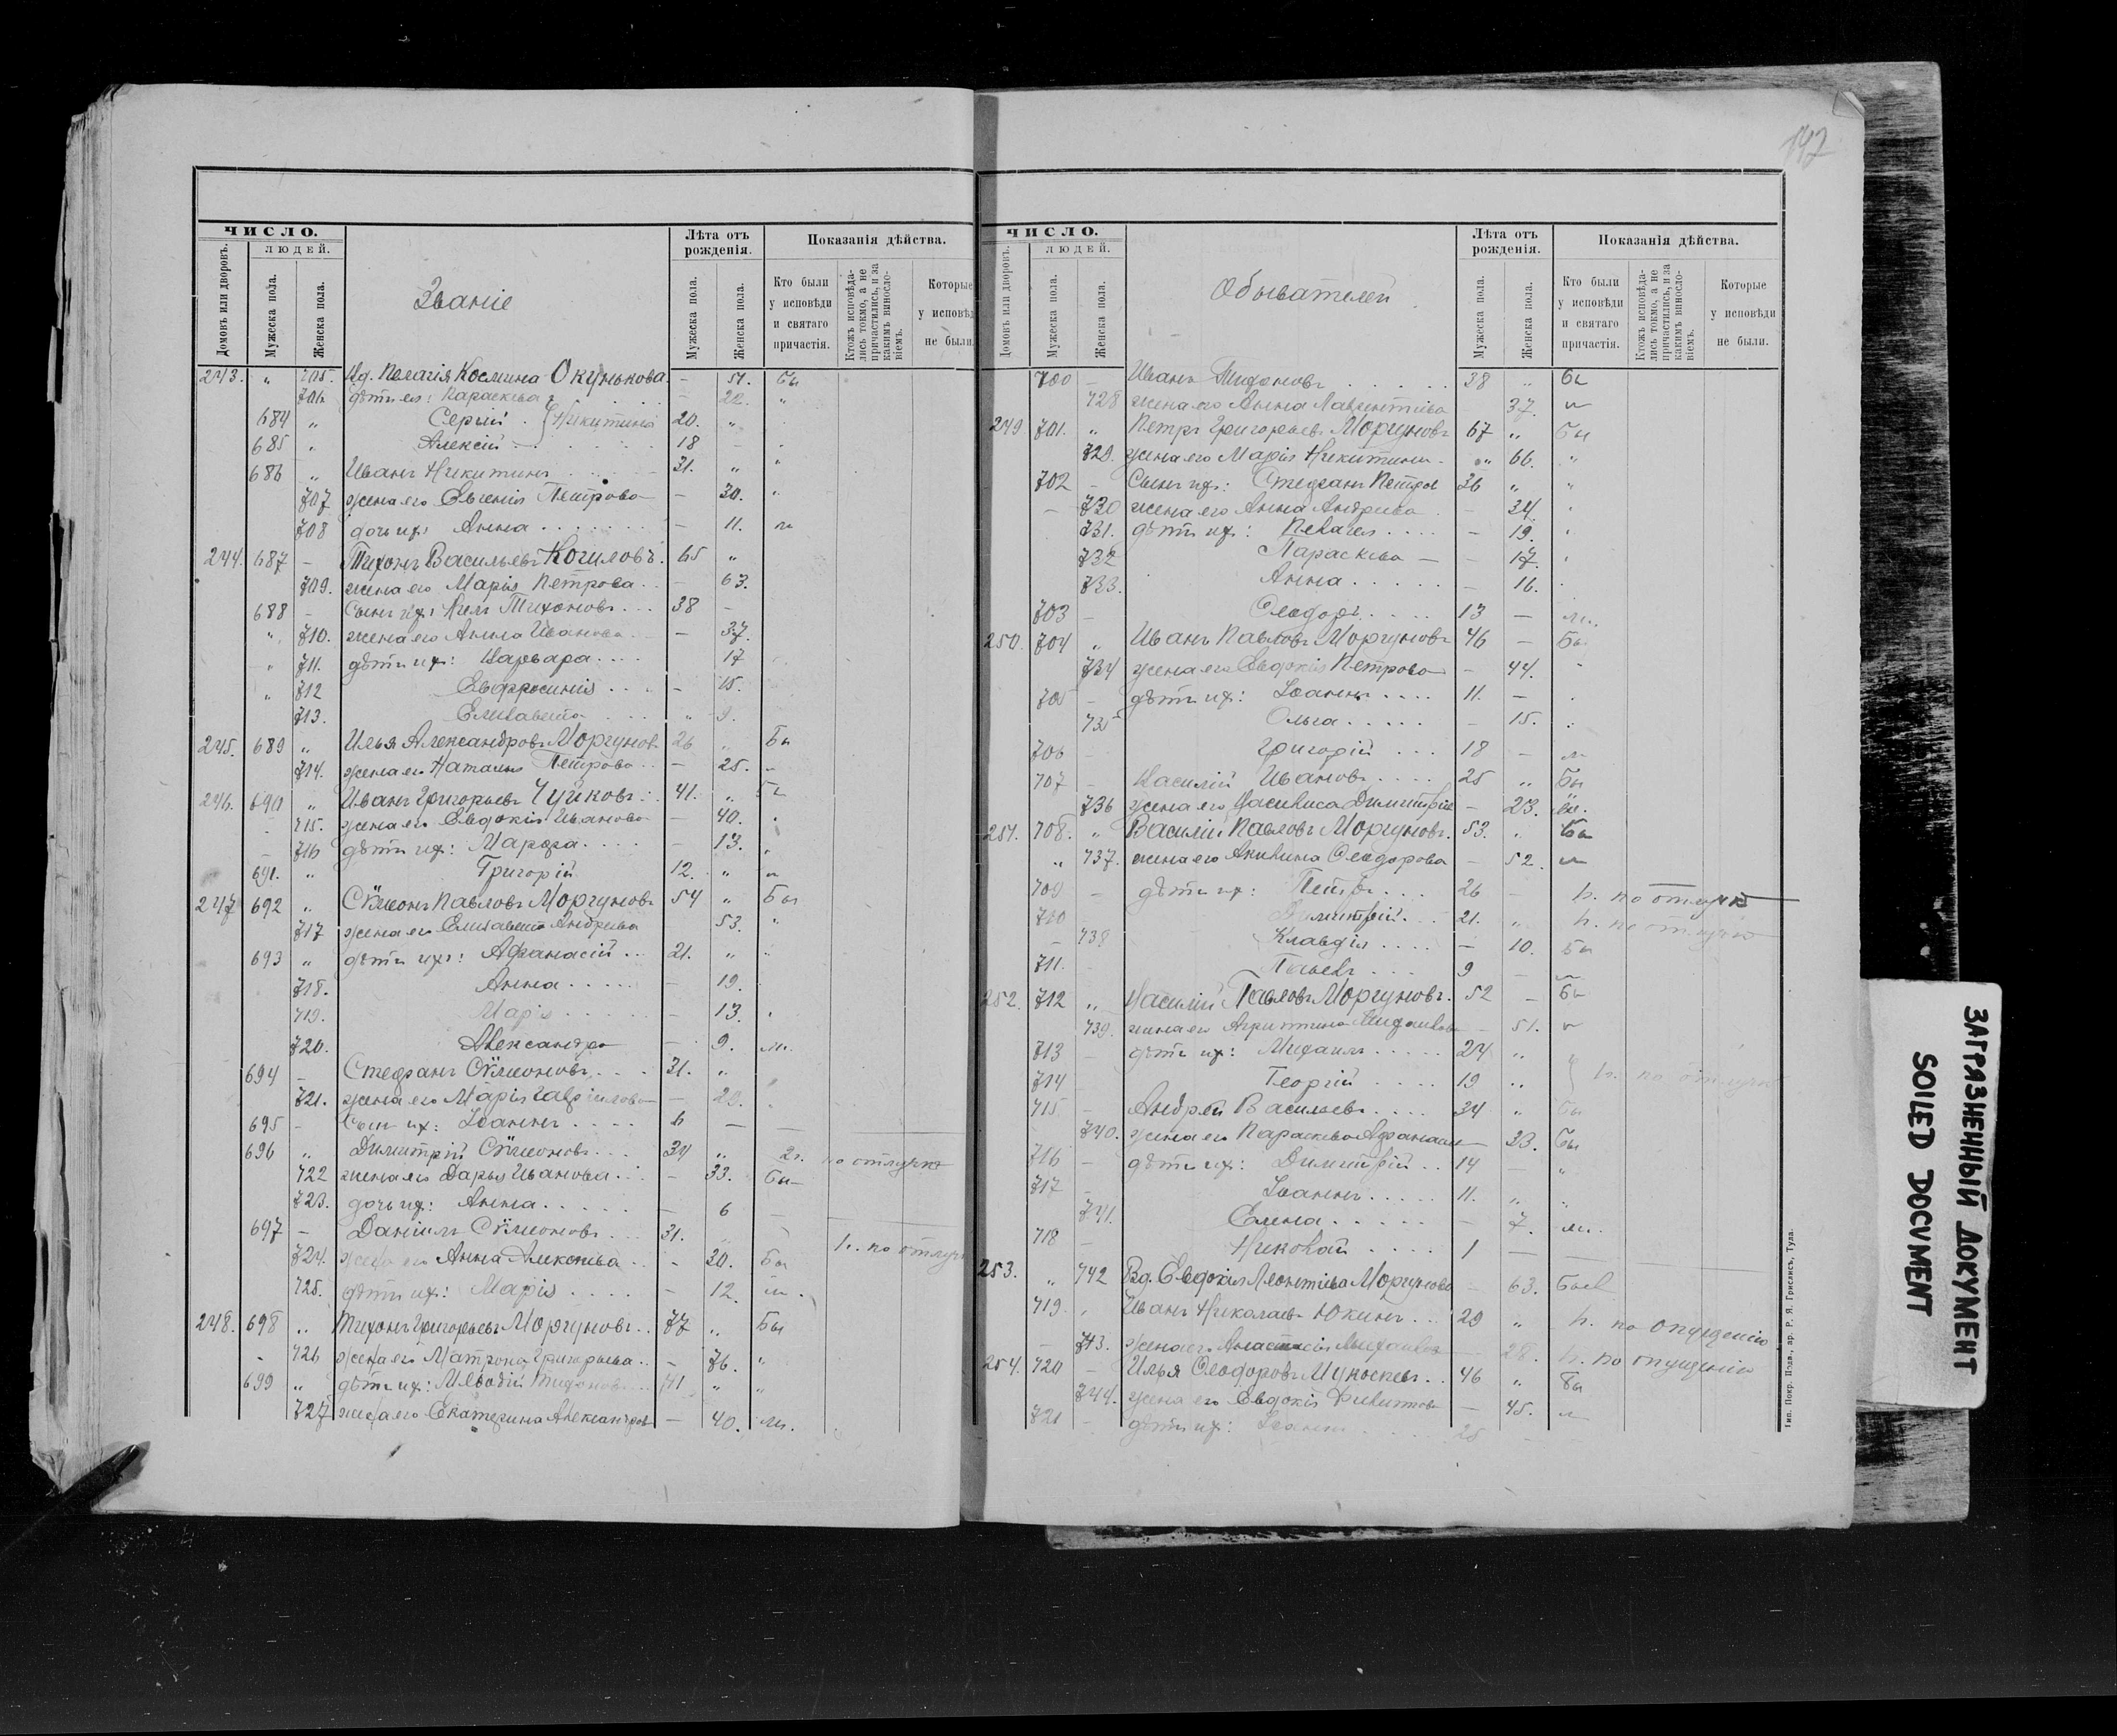 142
ЧИСЛО.
людей.
Домовъ или дворовъ.
Мужеска пола.
Женска пола.
Званіе
Лѣта отъ рожденія.
Мужеска пола.
Женска пола.
Показанія дѣйства.
Кто были у исповѣди и святаго причастія.
Ктожъ исповѣдались токмо, а не причастились, и за какимъ винословіемъ.
Которые у исповѣд
не были.
243. „ 705. Вд. Пелагія Космина Окунькова — 51. Бы
706 дѣти ея: Параскева — 22. „
684 „ Сергій Никитины 20. „
685 „ Алексій 18 —
686 „ Иванъ Никитинъ 31. „ „
707 жена его Евгенія Петрова — 30. „
708 дочь их: Анна — 11.
244. 687 — Тихонъ Васильевъ Когиловъ. 65 „
709. жена его Марія Петрова — 63.
688 — Сынъ их: Тихоновъ 38 —
„ 710. жена его Анна Иванова — 37.
„ 711. дѣти их: Варвара 17
„ 712 Евфросинія — 15.
713. Елисавета „ 9.
245. 689 „ Илья Александровъ Моргуновъ 26 „ Бы
714. жена его Наталія Петрова — 25.
246. 690 „ Иванъ Григорьевъ Чуйковъ 41. „ Бы
715. жена его Евдокія Иванова — 40.
716 дѣти их: Марфа — 13. „
691. „ Григорій 12. „
247 692 „ Сѵмеонъ Павловъ Моргуновъ 54 „ Бы
717 жена его Елисавета Андреева 53. „
693 „ дѣти их: Афанасій 21. „
718. Анна — 19.
719. Марія — 13.
720. Александра — 9.
694 — Стефанъ Сѵмеоновъ 31. „
721. жена его Марія Гавріилова — 29.
695 — Сын их: Іоаннъ 6 —
696 „ Димитрій Сѵмеоновъ 34 „ по отлучкѣ
722 жена его Дарья Иванова — 33. Бы
723. дочь их: Анна — 6
697 — Даніилъ Сѵмеоновъ 31. н. по отлуч
724. жена его Анна Алексѣева — 30. Бы
725. дѣти их: Марія — 12.
248. 698 „ Тихонъ Григорьевъ Моргуновъ 77 „ Бы
726 жена его Матрона Григорьева — 76. „
699 „ дѣти их: Меѳодій Тихоновъ 41 „ „
727 жена его Екатерина Александров — 40.
ЧИСЛО.
людей.
Домовъ или дворовъ.
Мужеска пола.
Женска пола.
Обывателей
Лѣта отъ рожденія.
Мужеска пола.
Женска пола.
Показанія дѣйства.
Кто были у исповѣди и святаго причастія.
Ктожъ исповѣдались токмо, а не причастились, и за какимъ винословіемъ.
Которые у исповѣди не были.
700 — Иванъ Тихоновъ 38 „ Бы
728 жена его Анна Лаврентіева 37.
249 701. „ Петръ Григорьевъ Моргуновъ 67 „ Бы
729. жена его Марія Никитина „ 66. „
702 — Сынъ их: Стефанъ Петров 36 „ „
— 730 жена его Анна Андреева — 34.
731. дѣти их: Пелагея — 19.
732 Параскева — — 17.
733. Анна — 16.
703 — Ѳеодоръ 13 —
250. 704 „ Иванъ Павловъ Моргуновъ 46 — Бы
734 жена его Евдокія Петрова — 44.
705 — дѣти их: Іоаннъ 11. —
735 Ольга — 15.
706 — Григорій 18 —
707 — Василій Ивановъ 25 „ Бы
736 жена его Василиса Димитріе — 23.
251. 708. „ Василій Павловъ Моргуновъ. 53. „ Бы
„ 737. жена его Акилина Ѳеодорова — 52.
709 — дѣти их: Петръ 26 — н. по отлучкѣ
710 — Димитрій 21. „ н. по отлучкѣ
— 738 Клавдія — 10. Бы
711. — Павелъ 9 —
252. 712 „ Василій Павловъ Моргуновъ. 52 — Бы
739. жена его Агриппина Михаилов — 51.
713 — дѣти их: Михаилъ 24 „
714 — Георгій 19 „ н. по отлучкѣ
715 — Андрей Васильевъ 34 „ Бы
740. жена его Параскева Афанасье — 33. Бы
716 — дѣти их: Димитрій 14 — „
717 — Іоаннъ 11. „
741. Елена — 7.
718 — Николай 1 —
253. „ 742 Вд. Евдокія Леонтіева Моргунова — 63. Была
719. „ Иванъ Николаев Юкинъ 29 „ н. по опущенію
— 743. жена его Анастасія Михаилов — 28. н. по опущенію
254. 720 — Илья Ѳеодоровъ 46 „ Бы
744. жена его Евдокія Филиппов — 45.
721 — дѣти их: Іоаннъ 25
Тип. Покр. Подв., ар. Р. Я. Грислисъ, Тула.
ЗАГРЯЗНЕННЫЙ ДОКУМЕНТ
SOILED DOCUMENT